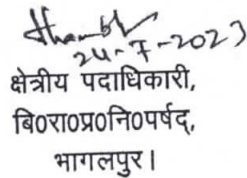 24-7-2023
क्षेत्रीय पदाधिकारी,
बि०रा०प्र०नि०पर्षद्,
भागलपुर।